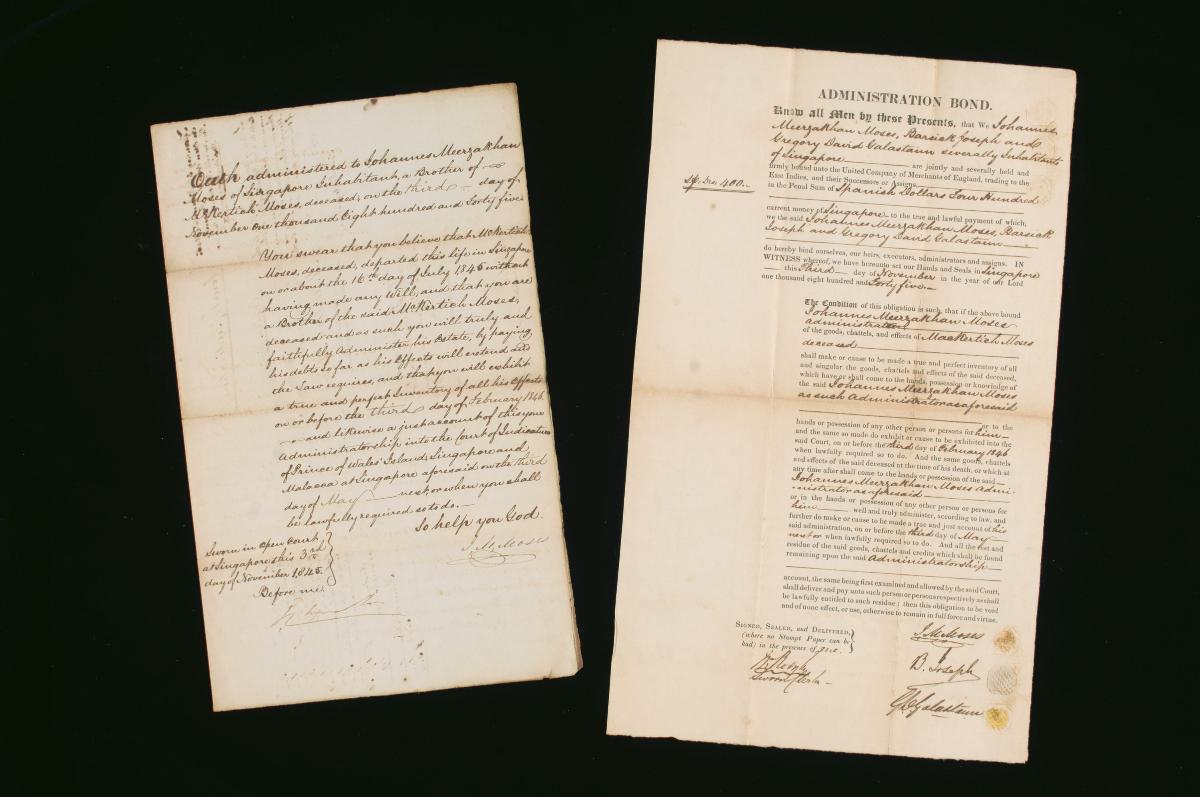 Oath administered to Johannes Meerzakhan
Moses of Singapore Inhabitant, a Brother of
McKertich Moses, deceased, on the third day of
November One thousand Eight hundred and Forty five.
You swear that you believe that McKertich
Moses, deceased, departed this life in Singapore
on or about the 16th day of July 1845 without
having made any Will, and that you are
a Brother of the said McKertich Moses,
deceased and as such you will truly and
faithfully Administer his Estate, by paying
his debts so far as his Effects will extend and
the Law requires, and that you will exhibit
a true and perfect Inventory of all his Effects
on or before the third day of February 1846
and likewise a just account of this your
Administratorship into the Court of Judicature
of Prince of Wales' Island, Singapore and
Malacca at Singapore aforesaid on the third
day of May next, or when you shall
be lawfully required so to do.
So help you God.
J. M. Moses
Sworn in Open Court
at Singapore this 3rd
day of November 1845.
Before me,
ADMINISTRATION BOND.
Know all Men by these Presents, that We Johannes
Meerzakhan Moses, Barsick Joseph and
Gregory David Galastaun severally Inhabitants
of Singapore are jointly and severally held and
firmly bound unto the United Company of Merchants of England, trading to the
East Indies, and their Successors or Assigns
in the Penal Sum of Spanish Dollars Four Hundred
Sp. Drs. 400.
current money of Singapore to the true and lawful payment of which,
we the said Johannes Meerzakhan Moses, Barsick
Joseph and Gregory David Galastaun
do hereby bind ourselves, our heirs, executors, administrators and assigns. IN
WITNESS whereof, we have hereunto set our Hands and Seals in Singapore
this Third day of November in the year of our Lord
one thousand eight hundred and Forty five
The Condition of this obligation is such, that if the above bound
Johannes Meerzakhan Moses
administrator
of the goods, chattels, and effects of MacKertich Moses
deceased
shall make or cause to be made a true and perfect inventory of all
and singular the goods, chattels and effects of the said deceased,
which have or shall come to the hands, possession or knowledge of
the said Johannes Meerzakhan Moses
as such Administrator as aforesaid
or to the
hands or possession of any other person or persons for him
and the same so made do exhibit or cause to be exhibited into the
said Court, on or before the third day of February 1846
when lawfully required so to do. And the same goods, chattels
and effects of the said deceased at the time of his death, or which at
any time after shall come to the hands or possession of the said
Johannes Meerzakhan Moses Admi-
nistrator as aforesaid
or, in the hands or possession of any other person or persons for
him well and truly administer, according to law, and
further do make or cause to be made a true and just account of his
said administration, on or before the third day of May
next or when lawfully required so to do. And all the rest and
residue of the said goods, chattels and credits which shall be found
remaining upon the said Administratorship
account, the same being first examined and allowed by the said Court,
shall deliver and pay unto such person or persons respectively as shall
be lawfully entitled to such residue; then this obligation to be void
and of none effect, or use, otherwise to remain in full force and virtue.
SIGNED, SEALED, and DELIVERED,
(where no Stampt Paper can be
had) in the presence of me.
Sworn Clerk
J. M. Moses
B. Joseph
G D Galastaun